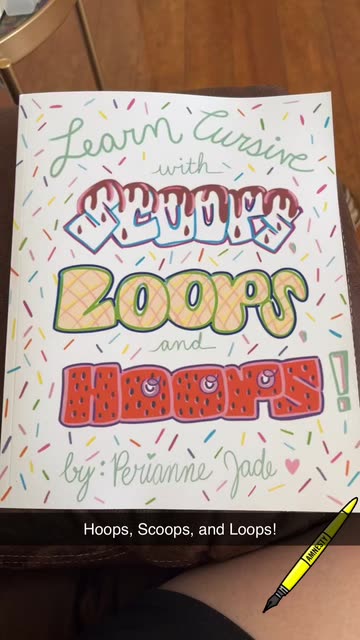 Learn Cursive
with
SCOOPS
LOOPS
and
HOOPS!
by: Perianne Jade
Hoops, Scoops, and Loops!
AMNESTY